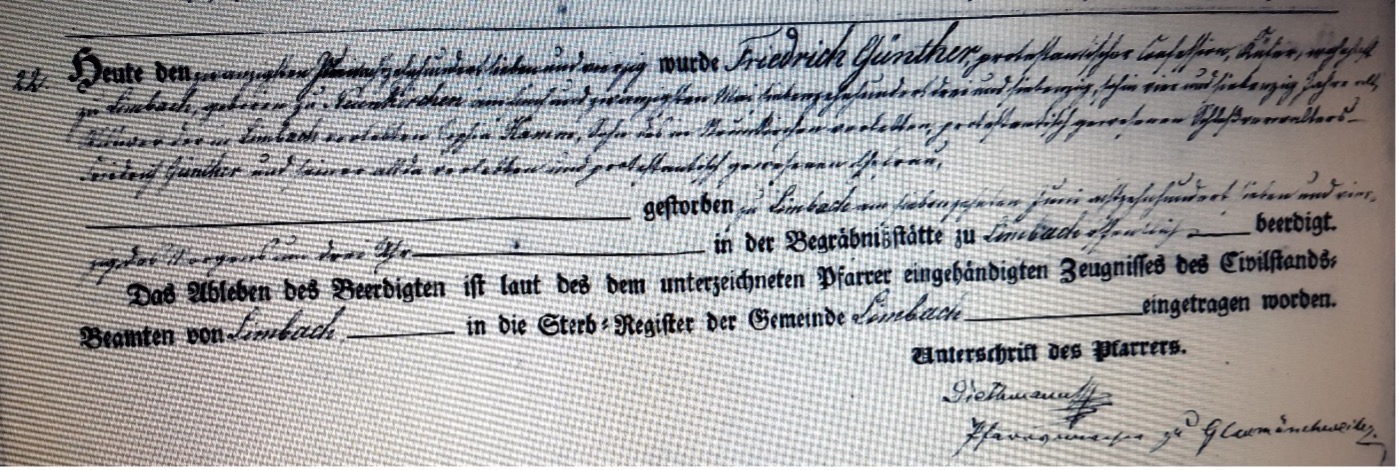 22.
Heute den zwanzigsten Juni achtzehnhundert sieben und vierzig wurde Friedrich Günther, protestantischer Confession, Küfer, wohnhaft
zu Limbach, geboren zu Neunkirchen am fünf und zwanzigsten Mai siebenzehnhundert drei und siebenzig, schin vier und siebenzig Jahre alt,
Wittwer der in Limbach verlebten Sophia Kamm, Sohn des in Neunkirchen verlebten, protestantisch gewesenen Schloßverwalters
Friedrich Günther und seiner allda verlebten und protestantisch gewesenen Ehefrau,
gestorben zu Limbach am siebenzehnten Juni achtzehnhundert sieben und vier-
zig des Morgens um drei Uhr in der Begräbnißstätte zu Limbach öffentlich beerdigt.
Das Ableben des Beerdigten ist laut des dem unterzeichneten Pfarrer eingehändigten Zeugnisses des Civilstands-
Beamten von Limbach in die Sterb-Register der Gemeinde Limbach eingetragen worden.
Unterschrift des Pfarrers.
Diethmann
Pfarrverweser zu Glanmünchweiler